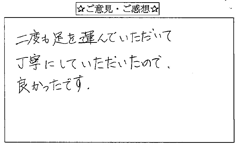 ☆ご意見・ご感想☆
二度も足を運んでいただいて
丁寧にしていただいたので、
良かったです。